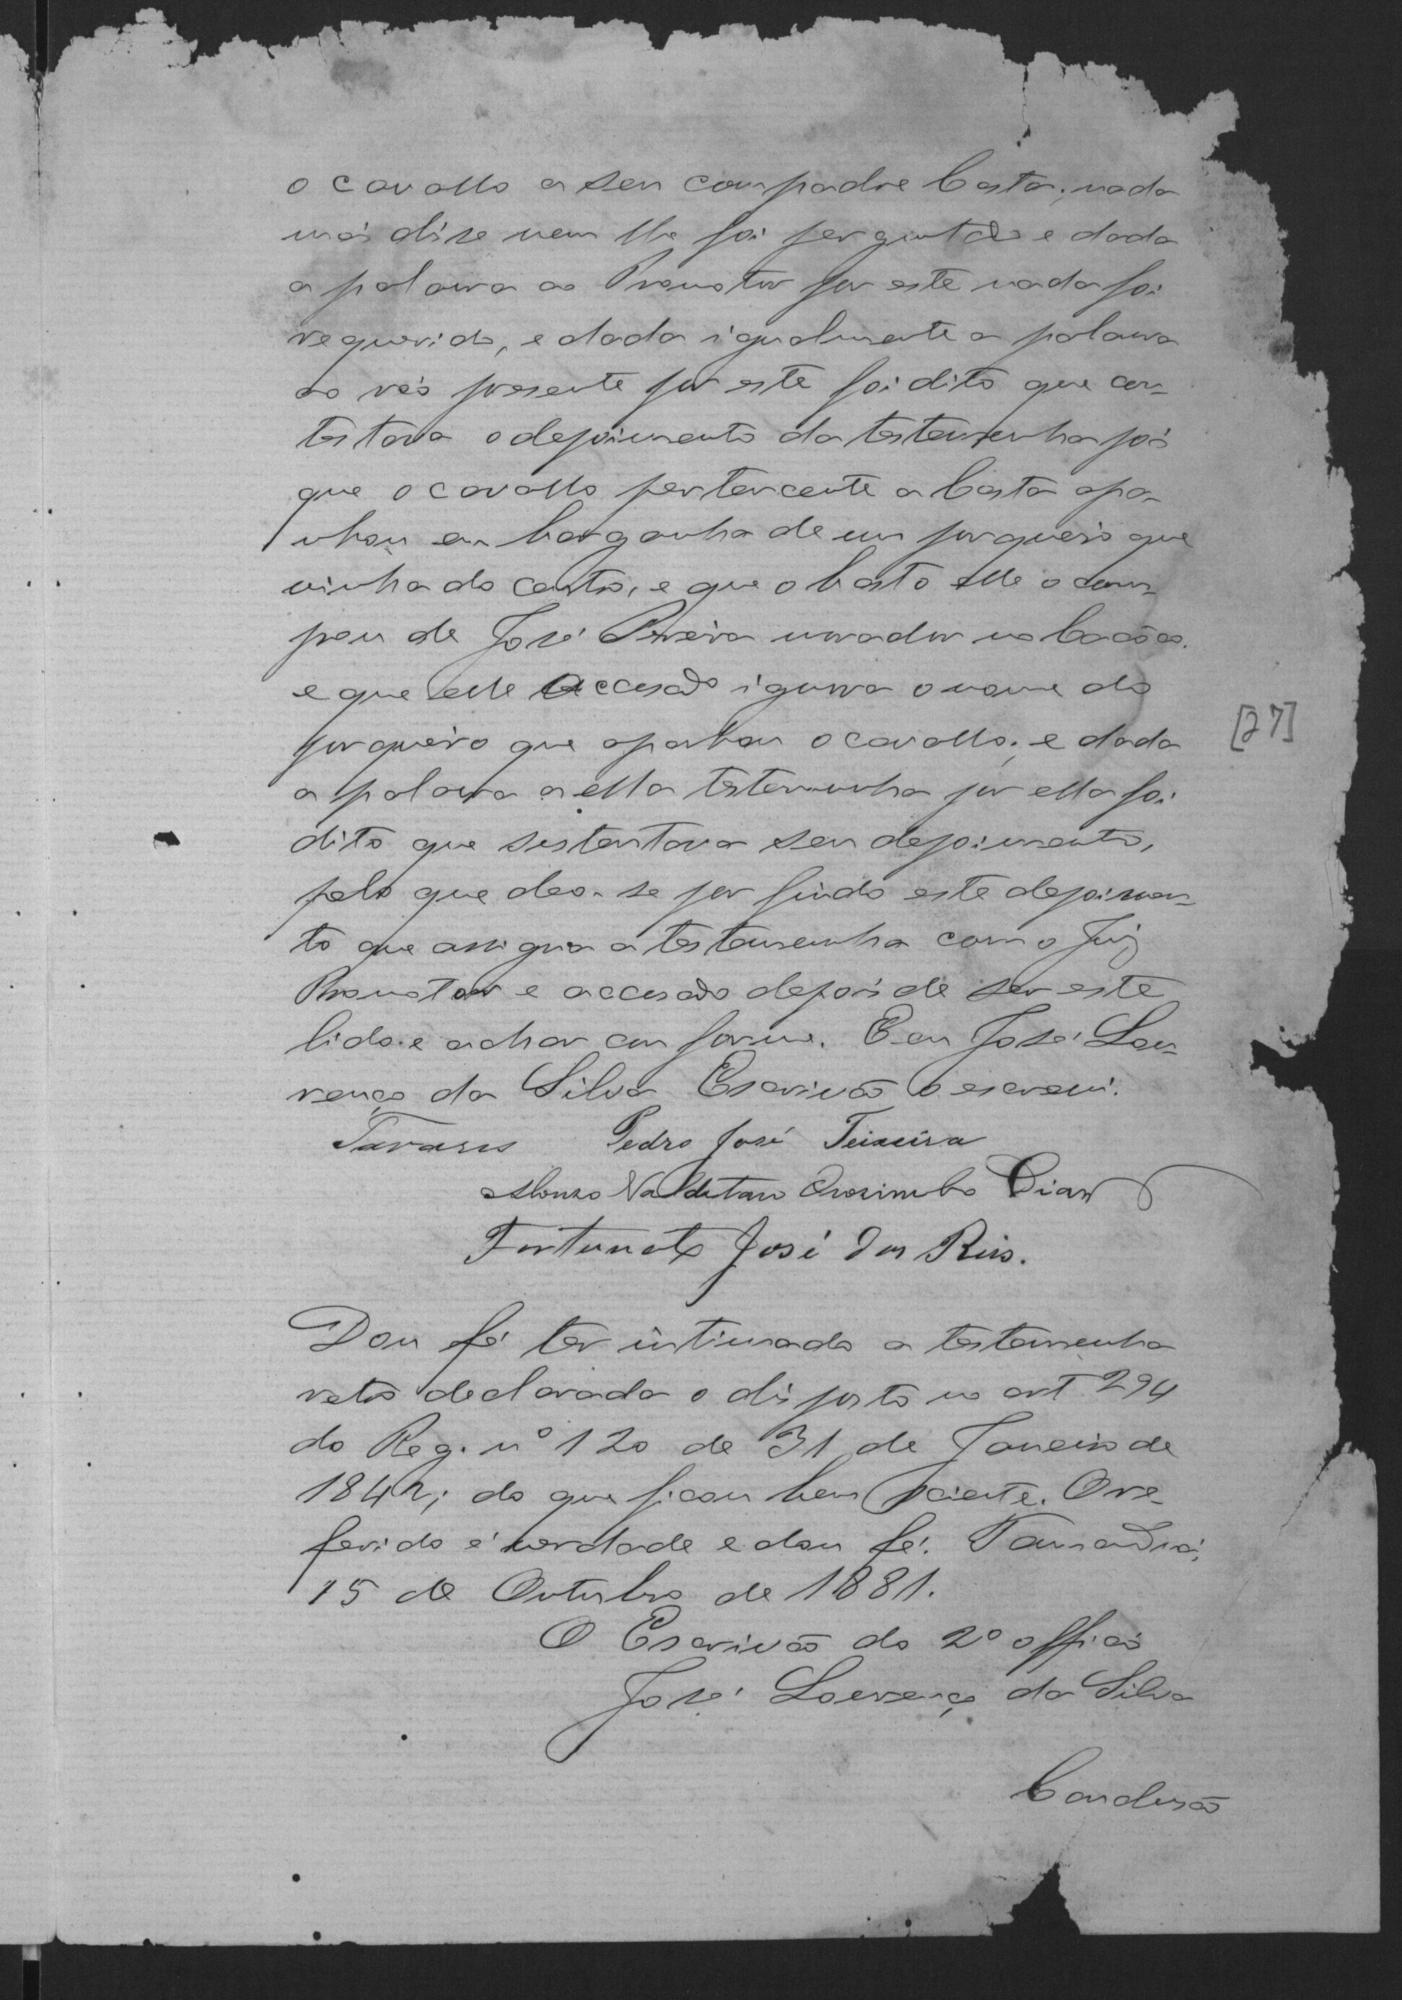 o cavallo a seu compadre Costa; nada
mais disse nem lhe foi perguntado e dada
a palavra ao Promotor por este nada foi
requerido, e dada igualmente a palavra
ao réo presente por este foi dito que con-
testava o depoimento da testemunha pois
que o cavallo pertencente a Costa apa-
nhou em barganha de um porqueiro que
vinha do certão, e que o basto elle o com-
prou de José Pereira morador no
e que elle accusado ignora o nome do
porqueiro que apanhou o cavallo; e dada
a palavra a ella testemunha por ella foi
dito que sustentava seu depoimento,
pelo que deo-se por findo este depoimen-
to que assigna a testemunha com o Juiz
Promotor e accusado depois de ser este
lido e achar conforme. Eu José Lou-
renço da Silva Escrivão o escrevi.
Tavares Pedro José Teixeira
Alonso Orosimbo Dias
Fortunato José dos Reis.
Dou fé ter intimado a testemunha
retro declarada o disposto no art 294
do Reg. nº 120 de 31 de Janeiro de
1842; do que ficou bem sciente. O re-
ferido é verdade e dou fé. Tamanduá,
15 de Outubro de 1881.
O Escrivão do 2º officio
José Lourenço da Silva
Conclusão
[27]